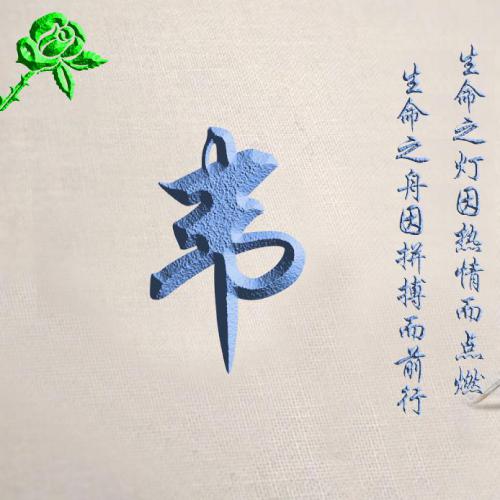 生命之灯因热情而点燃
生命之舟因拼搏而前行
韦